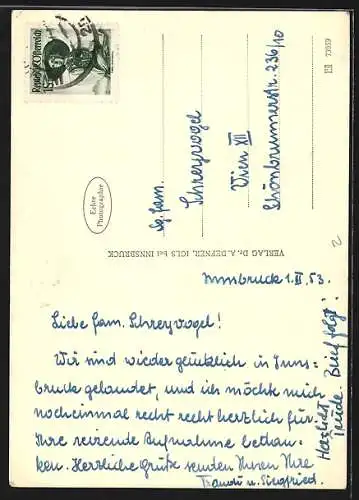 Republik Österreich
Echte
Photographie
Sg. Fam.
Schreyvogel
Wien XII
Schönbrunnerstr. 236/10
VERLAG Dr. A. DEFNER, IGLS bei INNSBRUCK
Innsbruck 1.II.53.
Liebe Fam. Schreyvogel!
Wir sind wieder glücklich in Inns-
bruck gelandet, und ich möcht mich
nocheinmal recht recht herzlich für
Ihre reizende Aufnahme bedan-
ken. Herzliche Grüße senden Ihnen Ihre
Traudi u. Siegfried.
Brief folgt!
Herzlichst
Trude.
2